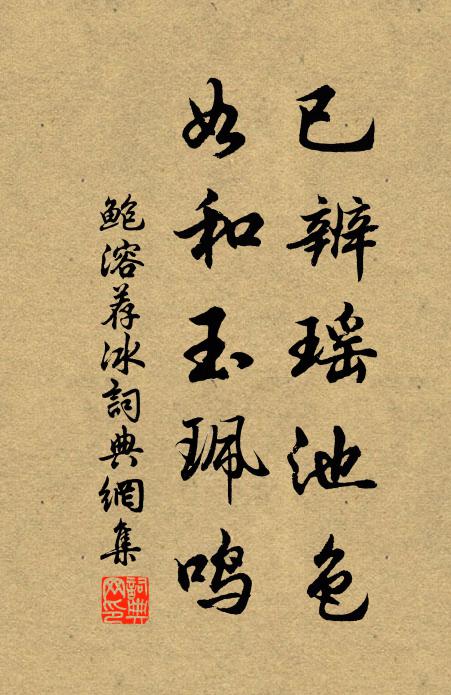 已辨瑶池色
如和玉珮鸣
鲍溶荐冰詞典網集
詞典网印